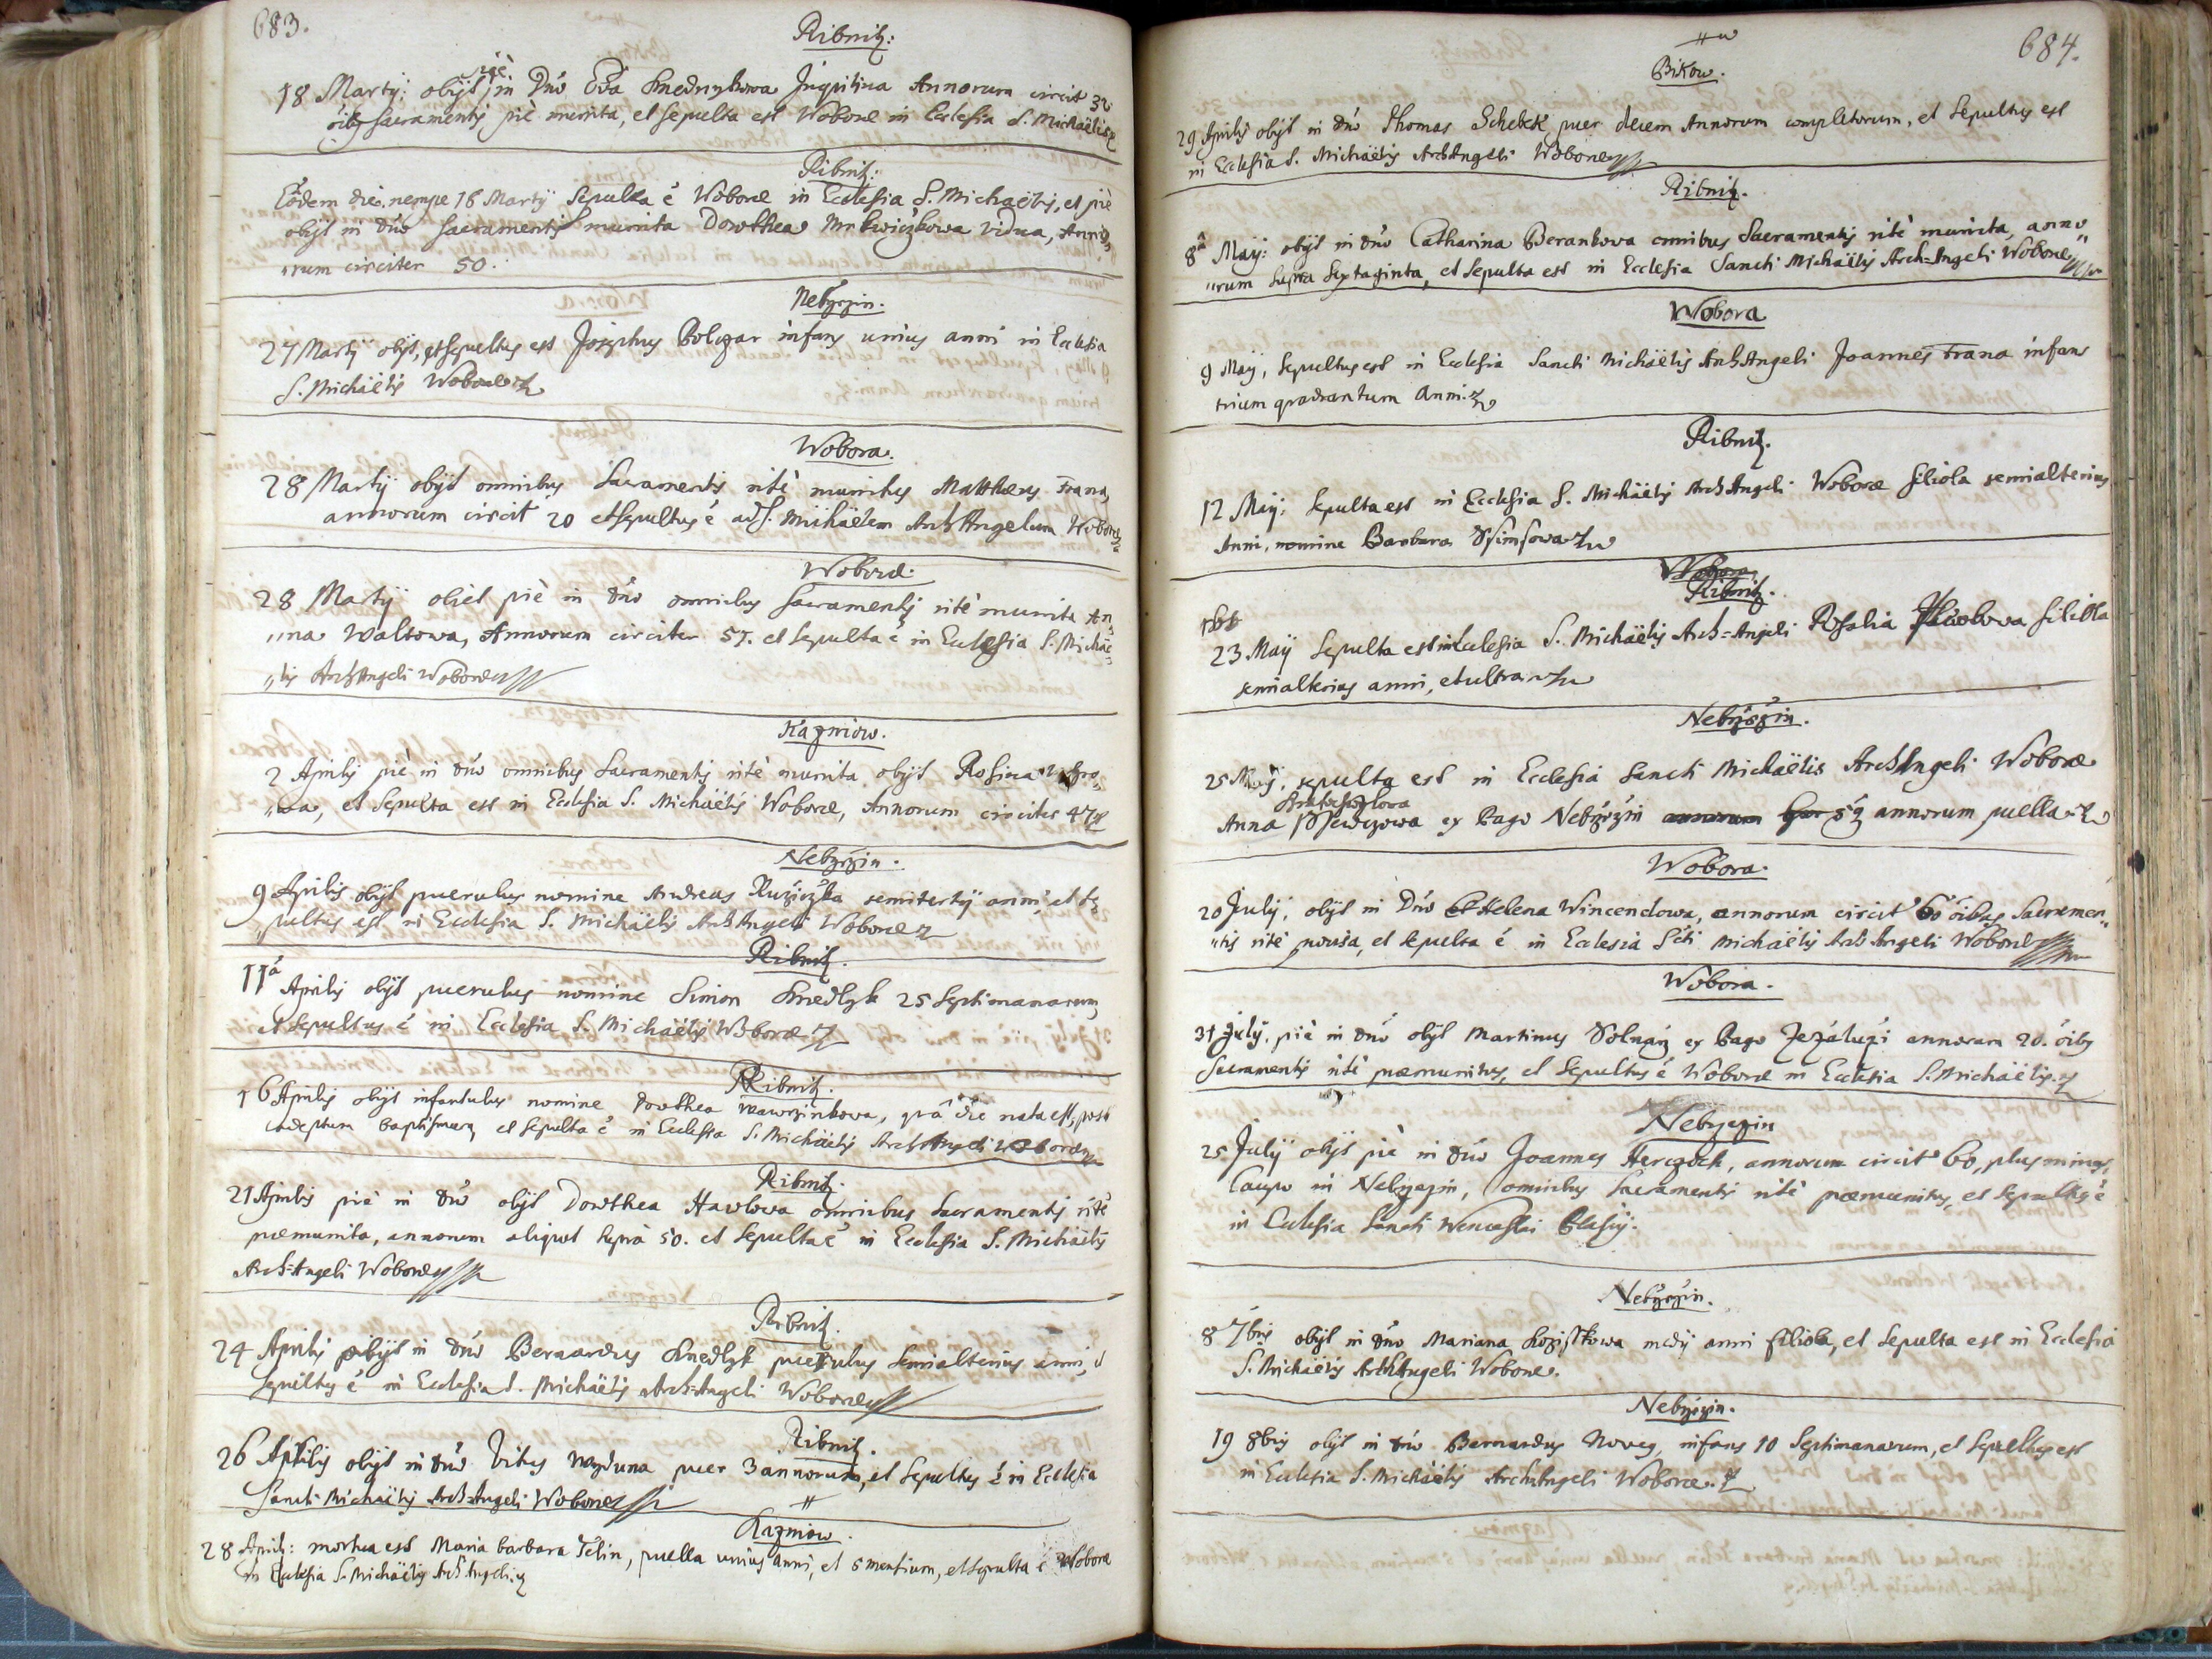 683.
Ribnitz:
18 Martij: obijt piè in Dnō Eva Knednykowa Inquilina Annorum circit 32
oībg Sacramentis piè munita, et sepulta est Woboræ in Ecclesia S. Michaëlis
Ribnitz:
Eodem die nempe 18 Martij Sepulta é Woboræ in Ecclesia S. Michaëlis, et piè
obijt in dnō Sacramentis munita Dorothea Mrkwiczkowa vidua, Anno,,
,,rum circiter 50.
Nebrzezin.
27 Martij obijt, et sepultus est Josephus Bolczar infans unius anni in Ecclesia
S. Michaëlis Woboræ
Wobora.
28 Martij obijt omnibus Sacramentis ritè munitus Matthæus Frana,
annorum circit 20 et sepultus é ad S. Michaëlem ArchAngelum Woboræ
Woboræ.
28 Martij obiet piè in dnō omnibus sacramentis ritè munita An,,
,,na Waltowa, Annorum circiter 57. et sepulta é in Ecclesia S. Michaë-
,,lis ArchAngeli Woboræ
Kazniow.
2 Aprilis piè in dnō omnibus Sacramentis ritè munita obijt Rosina
,,wa, et Sepulta est in Ecclesia S. Michaëlis Woboræ, Annorum circiter 47
Nebrzezin.
9 Aprilis obijt puerulus nomine Andreas Ruziczka semitertij anni, et Se,,
,,pultus est in Ecclesia S. Michaëlis ArchAngeli Woboræ
Ribnitz.
11 Aprilis obijt puerulus nomine Simon Knedlyk 25 Septimanarum,
et sepultus é in Ecclesia S. Michaëlis Woboræ
Ribnitz.
16 Aprilis obijt infantulus nomine Dorothea Wawrzinkowa, quâ die nata est, post
adeptum baptismum, et sepulta é in Ecclesia S. Michaëlis ArchAngeli Woboræ
Ribnitz.
21 Aprilis piè in dnō obijt Dorothea Hawlowa omnibus Sacramentis ritè
præmunita, annorum aliquot supra 50. et Sepulta é in Ecclesia S. Michaëlis
Arch=Angeli Woboræ
Ribnitz.
24 Aprilis obijt in dnō Bernardus Knedlyk puerulus semialterius anni,
sepultus é in Ecclesia S. Michaëlis Arch=Angeli Woboræ
Ribnitz.
26 Aprilis obijt in dnō Vitus Wayduna puer 3 annorum, et Sepultus é in Ecclesia
Sancti Michaëlis ArchAngeli Woboræ
Kazniow.
28 April: mortua est Maria Barbara Telin, puella unius anni, et 5 mensium, et sepulta é Wobora
in Ecclesia S. Michaëlis ArchAngeli
684.
Bikow.
29 Aprilis obijt in dnō Thomas Schebek puer decem Annorum completorum, et Sepultus est
in Ecclesia S. Michaëlis ArchAngeli Woboræ
Ribnitz.
8 Maij: obijt in dnō Catharina Berankowa omnibus Sacramentis ritè munita, anno,,
,,rum supra Septaginta, et sepulta est in Ecclesia Sancti Michaëlis Arch=Angeli Woboræ
Wobora
9 Maij, Sepultus est in Ecclesia Sancti Michaëlis ArchAngeli Joannes Frana infans
trium quadrantum anni.
Ribnitz.
12 Maij: Sepulta est in Ecclesia S. Michaëlis ArchAngeli Woboræ filiola semialterius
Anni, nomine Barbara Ssimsowa
Wobora.
Ribnitz.
23 Maij Sepulta est in Ecclesia S. Michaëlis Arch=Angeli Rosalia filiola
semialterius anni, et ultra
Nebrzezin.
25 Maij. sepulta est in Ecclesia Sancti Michaëlis ArchAngeli Woboræ
Anna ex Pago Nebrzezin annorum puella
Wobora.
20 Julij, obijt in Dnō Helena Wincendowa, annorum circit 60 oībus Sacramen,,
,,tis ritè provisa, et sepulta é in Ecclesia Scti Michaëlis ArchAngeli Woboræ
Wobora.
31 Julij. piè in dnō obijt Martinus Solnarz ex Pago Jezaluzi annorum 20. oībg
Sacramentis ritè præmunitus, et Sepultus é Woboræ in Ecclesia S. Michaëlis.
Nebrzezin
25 Julij obijt piè in dnō Joannes Herczoch, annorum circit 60, plus minus,
Caupo in Nebrzezin, omnibus sacramentis ritè præmunitus, et sepultus é
in Ecclesia Sancti Wenceslai Plasij.
Nebrzezin.
8 7bris obijt in dnō Mariana Koziskowa medij anni filiola, et sepulta est in Ecclesia
S. Michaëlis ArchAngeli Woboræ.
Nebrzezin.
19 8bris obijt in dnō Bernardus Noveg, infans 10 Septimanarum, et Sepultus est
in Ecclesia S. Michaëlis ArchAngeli Woboræ.